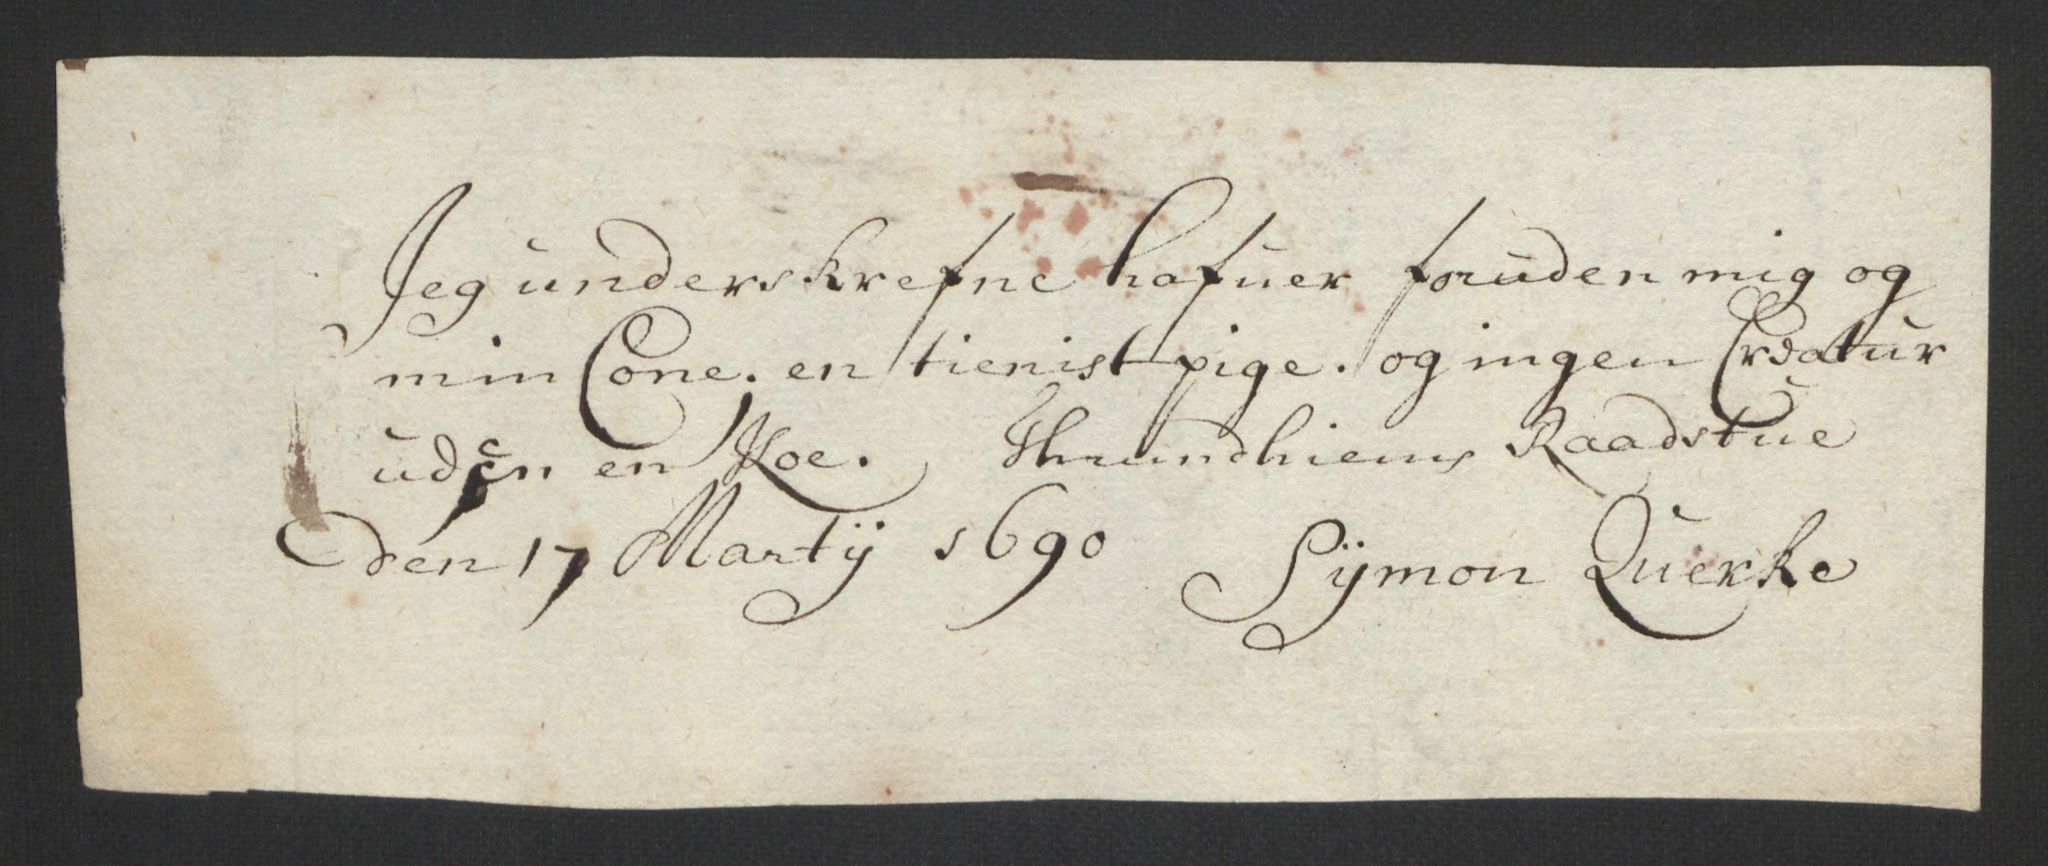 Jeg underskrefne hafuer foruden mig og
min Cone. en tienist pige. og ingen Creatur
uden en Koe. Thrundhiems Raadstue
den 17 Martij 1690 Sijmon Querke